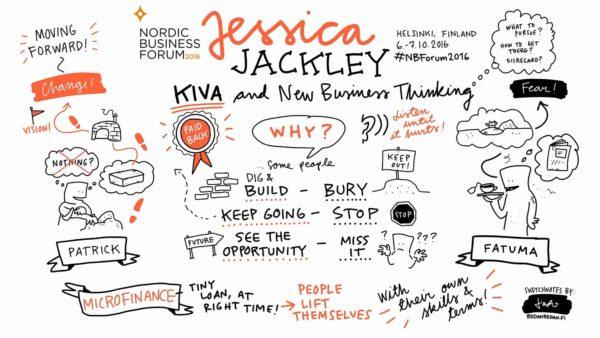 MOVING
FORWARD!
Change!
VISION!
NOTHING?
PATRICK
NORDIC
BUSINESS
FORUM 2016
Jessica
JACKLEY
HELSINKI, FINLAND
6.-7.10.2016
#NBForum2016
KIVA and New Business Thinking
PAID
BACK
WHY?
Listen
until
it hurts!
...some people
DIG &
BUILD - BURY
KEEP
OUT!
KEEP GOING - STOP
STOP
FUTURE
SEE THE
OPPORTUNITY - MISS
IT
? ???
WHAT TO
PURSUE?
HOW TO GET
THERE?
DISREGARD?
Fear!
FATUMA
MICROFINANCE
TINY
LOAN, AT
RIGHT TIME!
PEOPLE
LIFT
THEMSELVES
With
their own
skills &
terms!
SKETCHNOTES BY:
REDANREDAN.FI